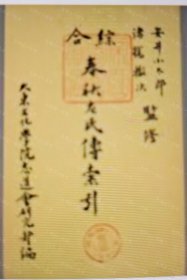 安井小太郎
諸橋轍次 監修
綜合 春秋左氏傳索引
大東文化學院志道會研究部編